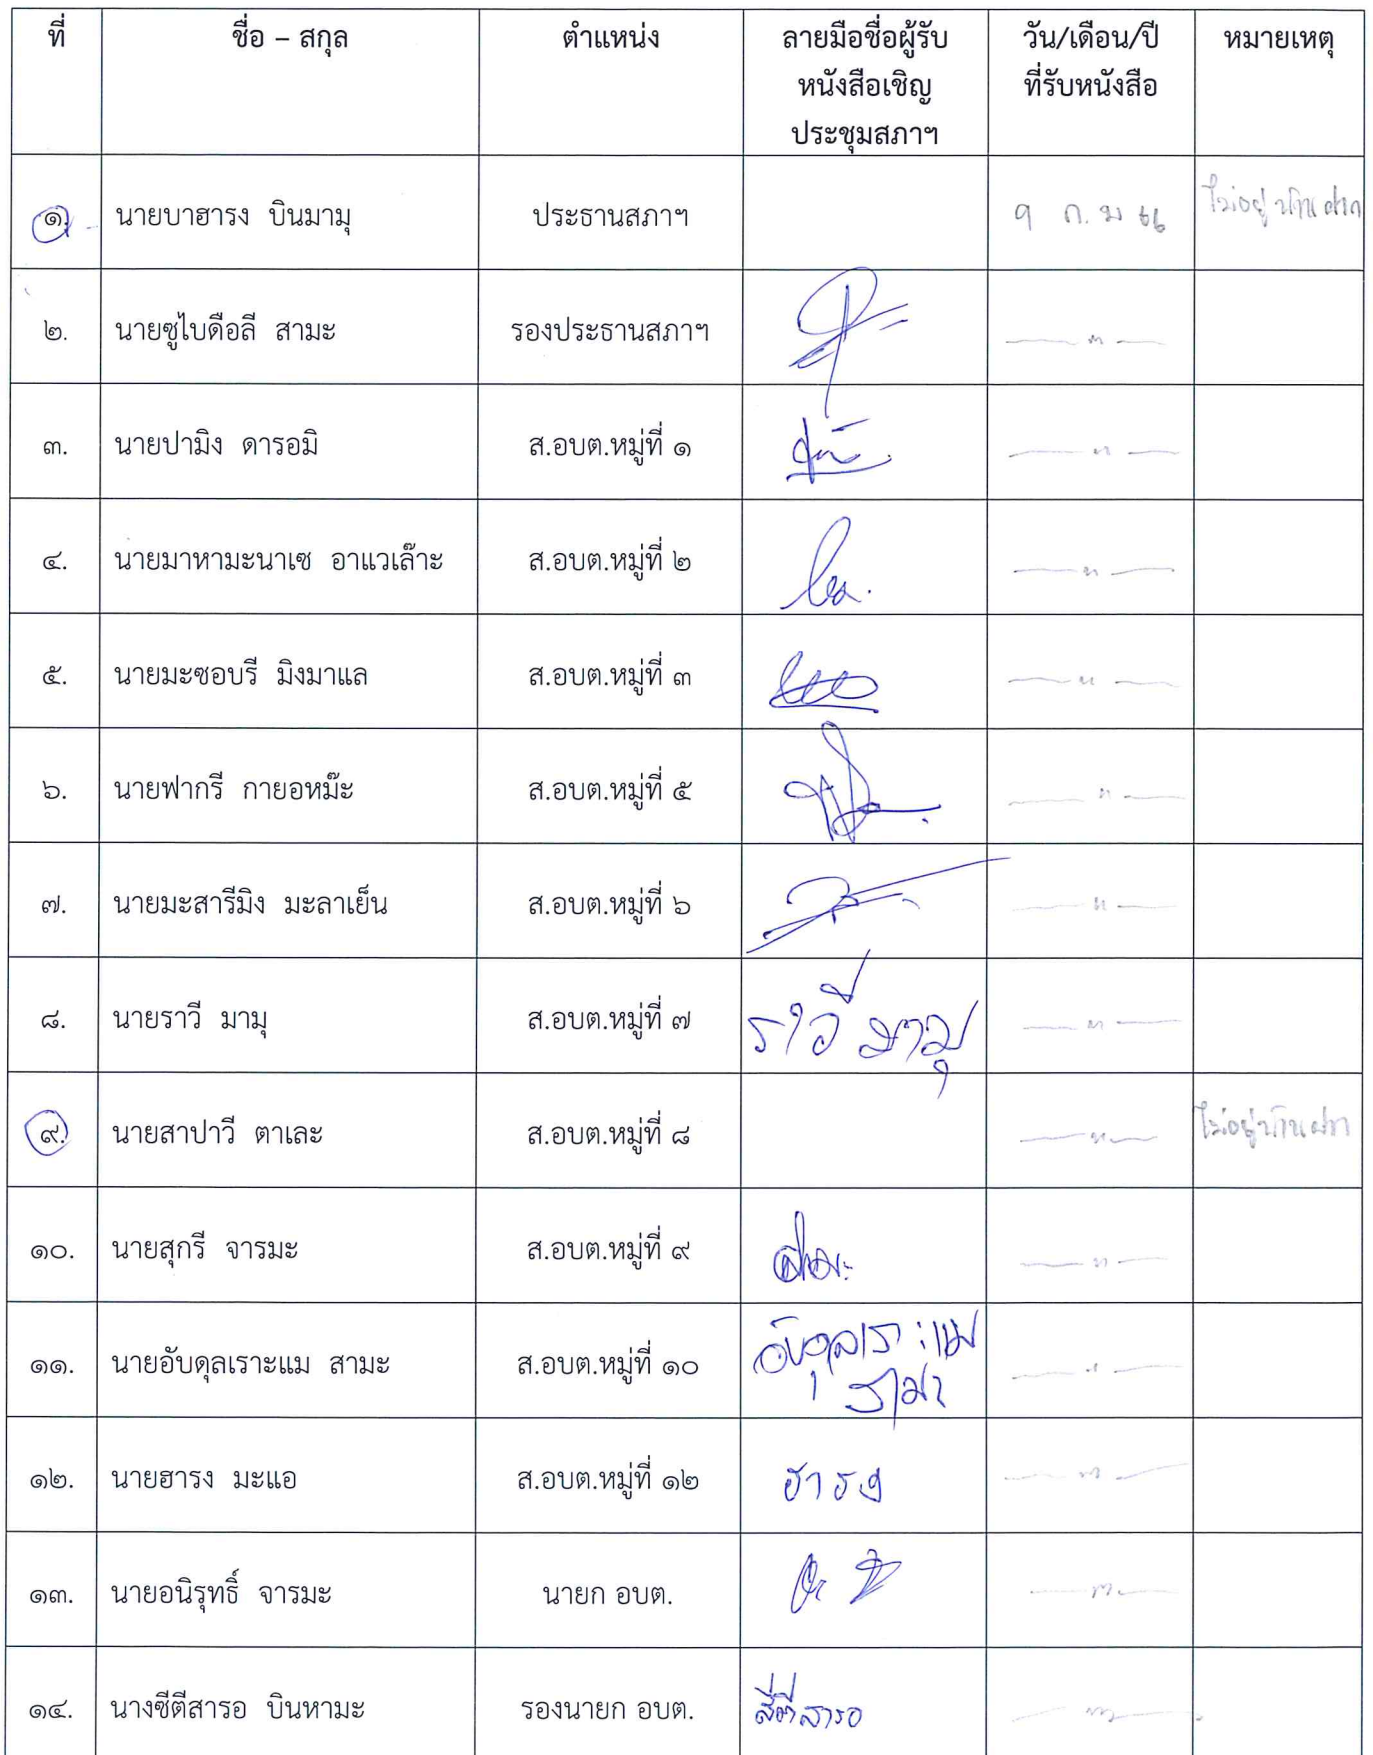 ที่ ชื่อ – สกุล ตำแหน่ง ลายมือชื่อผู้รับ วัน/เดือน/ปี หมายเหตุ
หนังสือเชิญ ที่รับหนังสือ
ประชุมสภาฯ
๑. นายบาฮารง บินมามุ ประธานสภาฯ ๑ ก.พ ๖๖ ไม่อยู่บ้านฝาก
๒. นายซูไบดือลี สามะ รองประธานสภาฯ
๓. นายปามิง ดารอมิ ส.อบต.หมู่ที่ ๑
๔. นายมาหามะนาเซ อาแวเล๊าะ ส.อบต.หมู่ที่ ๒
๕. นายมะซอบรี มิงมาแล ส.อบต.หมู่ที่ ๓
๖. นายฟากรี กายอหม๊ะ ส.อบต.หมู่ที่ ๕
๗. นายมะสารีมิง มะลาเย็น ส.อบต.หมู่ที่ ๖
๘. นายราวี มามุ ส.อบต.หมู่ที่ ๗ ราวี มามุ
๙. นายสาปาวี ตาเละ ส.อบต.หมู่ที่ ๘ ไม่อยู่บ้านฝาก
๑๐. นายสุกรี จารมะ ส.อบต.หมู่ที่ ๙
๑๑. นายอับดุลเราะแม สามะ ส.อบต.หมู่ที่ ๑๐ อับดุลเราะแม
สามะ
๑๒. นายฮารง มะแอ ส.อบต.หมู่ที่ ๑๒ ฮารง
๑๓. นายอนิรุทธิ์ จารมะ นายก อบต.
๑๔. นางซีตีสารอ บินหามะ รองนายก อบต. สีตีสารอ